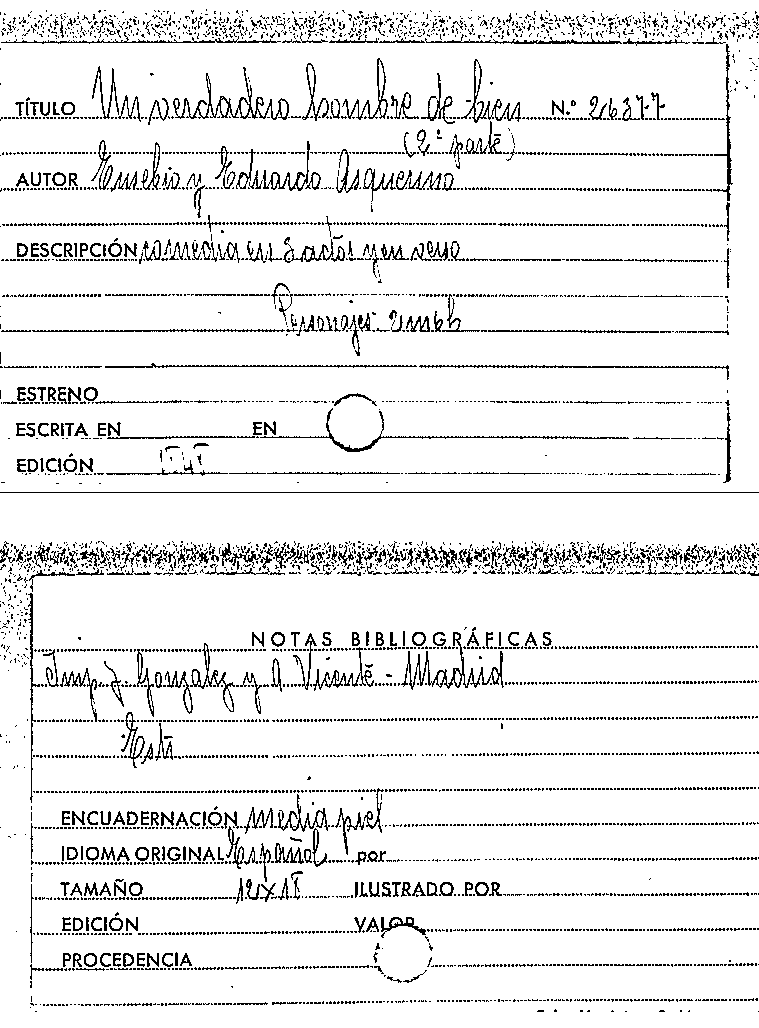 TÍTULO Un verdadero hombre de bien N.º 26377
(2ª parte)
AUTOR Eusebio y Eduardo Asquerino
DESCRIPCIÓN comedia en 3 actos y en verso
Personajes 2m6h
ESTRENO
ESCRITA EN EN
EDICIÓN
NOTAS BIBLIOGRÁFICAS
Imp J. Gonzalez y A Vicente - Madrid
ENCUADERNACIÓN media piel
IDIOMA ORIGINAL Español por
TAMAÑO ILUSTRADO POR
EDICIÓN VALOR
PROCEDENCIA